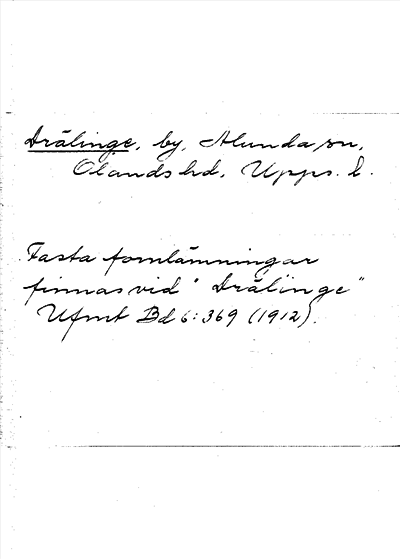 Drälinge, by, Alunda sn,
Olands hd, Upps. l.
Fasta fornlämningar
finnas vid "Drälinge"
Ufmt Bd 6:369 (1912).